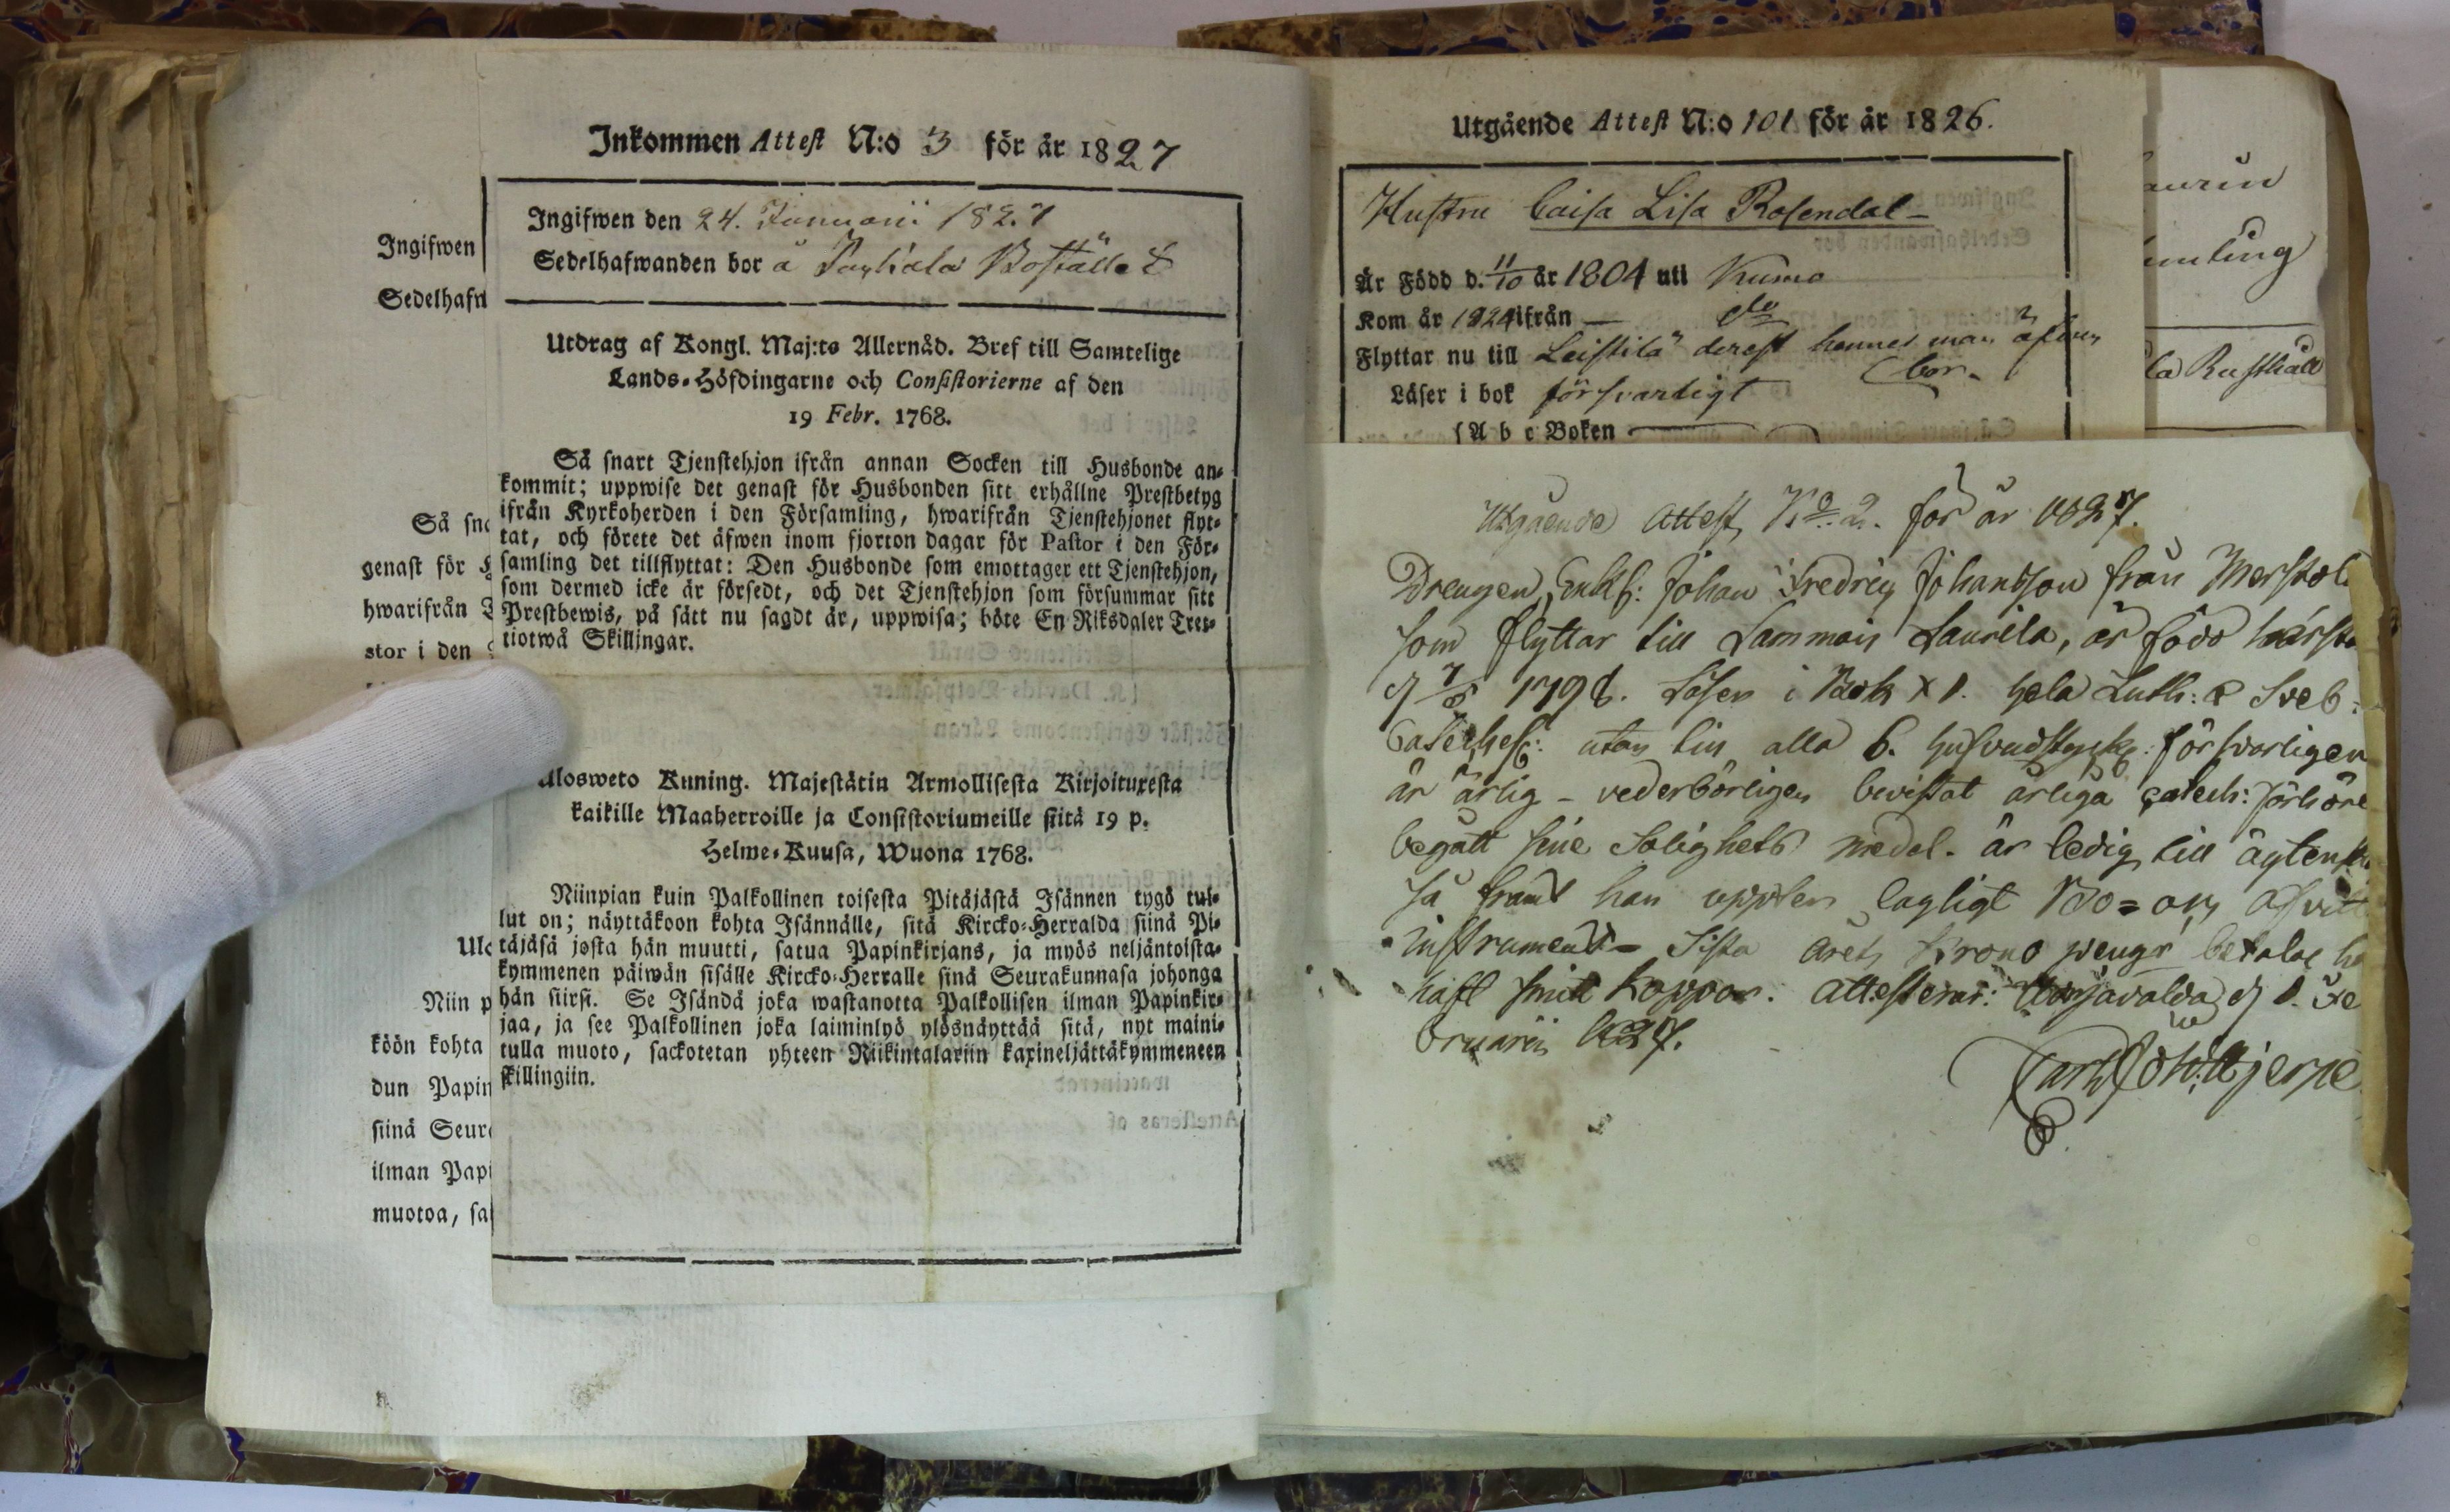 Inkommen Attest N:o 3 för år 1827
Ingifwen den 24. Januarii 1827
Sedelhafwanden bor å Boställe
Utdrag af Kongl. Maj:ts Allernåd. Bref till Samtelige
Lands-Höfdingarne och Consistorierne af den
19 Febr. 1768.
Så snart Tjenstehjon ifrån annan Socken till Husbonde an-
kommit; uppwise det genast för Husbonden sitt erhållne Prestbetyg
ifrån Kyrkoherden i den Församling, hwarifrån Tjenstehjonet flyt-
tat, och förete det äfwen inom fjorton dagar för Pastor i den För-
samling det tillflyttat: Den Husbonde som emottager ett Tjenstehjon,
som dermed icke är försedt, och det Tjenstehjon som försummar sitt
Prestbewis, på sätt nu sagdt är, uppwisa; böte En Riksdaler Tret-
tiotwå Skillingar.
Ulosweto Kuning. Majestätin Armollisesta Kirjoituxesta
kaikille Maaherroille ja Consistoriumeille siitä 19 p.
Helme-Kuusa, Wuona 1768.
Niinpian kuin Palkollinen toisesta Pitäjästä Isännen tygö tul-
lut on; näyttäkoon kohta Isännälle, sitä Kircko-Herralda siinä Pi-
täjäsä josta hän muutti, satua Papinkirjans, ja myös neljäntoista-
kymmenen päiwän sisälle Kircko-Herralle sinä Seurakunnasa johonga
hän siirsi. Se Isändä joka wastanotta Palkollisen ilman Papinkir-
jaa, ja see Palkollinen joka laiminlyö ylösnäyttää sitä, nyt maini-
tulla muoto, sackotetan yhteen Riikintalariin kaxineljättäkymmeneen
skillingiin.
Ingifwen
Sedelhafw
Så sna
genast för H
hwarifrån T
stor i den
Ulo
Niin p
köön kohta
dun Papin
siinä Seur
ilman Papi
muotoa, sa
Utgående Attest N:o 101 för år 1826.
Hustru Caisa Lisa Rosendal
Är Född d. 11/10 år 1804 uti Kumo
Kom år 1824 ifrån — do
Flyttar nu till Leistilä derest hennes man äfven
bor.
Läser i bok försvarligt
A b c Boken
la Rusthåll
Utgående Attest No 2. för år 1827.
Drengen, Enkl: Johan Fredric Johansson från
som flyttar till Lammais Laurila, är född härst
d 7/5 179 . Läser i Bok x 1. hela Luth: & Sveb:
Cateches: utan till alla 6. hufvudstyck: försvarligen
är ärlig - vederbörligen bevistat årliga catech: förhöre
begått sine Salighets medel. är ledig till ägtensk
så framt han uppter lagligt Bo= och Afvitt
instrument - Sista årets Krono penga betalat ha
haft smitt koppor. attesterar: d 1. Fe
bruarii 1827.
Carl